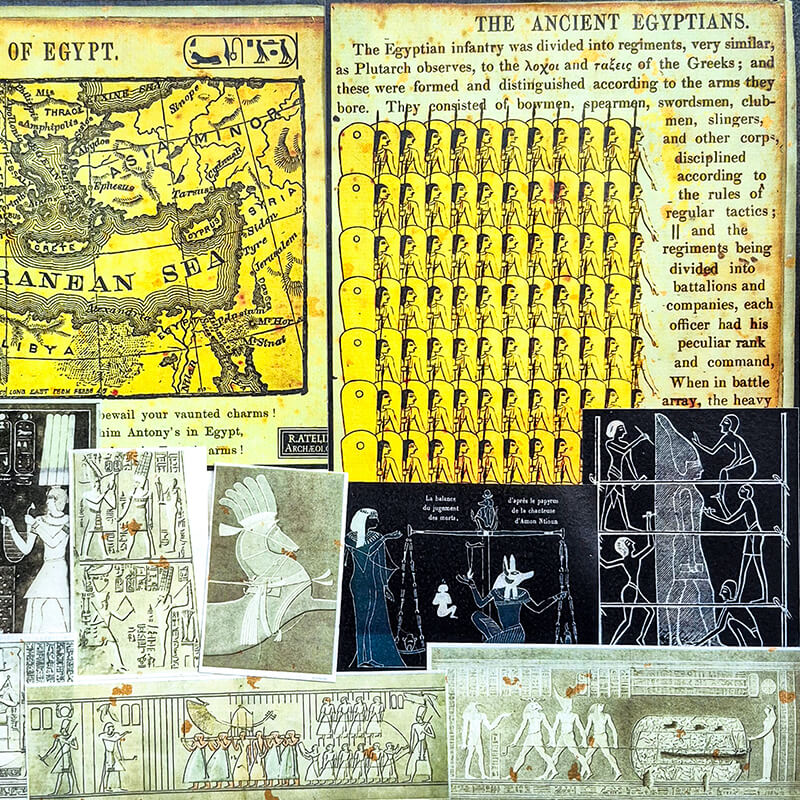 OF EGYPT.
Mis
THRACE
Amphipolis
Sinope
ASIA MINOR
Ephesus
Tarsus
SYRIA
CYPRUS
Sidon
Tyre
Jerusalem
CRETE
RANEAN SEA
Alexandria
LIBYA
EGYPT
Mt Hor
Mt Sinai
LONG EAST FROM FERRO
bewail your vaunted charms !
him Antony's in Egypt,
arms !
R.ATELI
ARCHÆOLO
THE ANCIENT EGYPTIANS.
The Egyptian infantry was divided into regiments, very similar,
as Plutarch observes, to the λοχοι and ταξεις of the Greeks ; and
these were formed and distinguished according to the arms they
bore. They consisted of bowmen, spearmen, swordsmen, club-
men, slingers,
and other corps,
disciplined
according to
the rules of
regular tactics ;
|| and the
regiments being
divided into
battalions and
companies, each
officer had his
peculiar rank
and command,
When in battle
array, the heavy
La balance
du jugement
des morts,
d'après le papyrus
de la chanteuse
d'Amon Ntioun